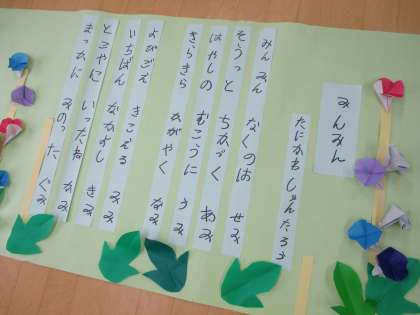 みんみん
たにかわしゅんたろう
みんみん なくのは せみ
そうっと ちかづく あみ
はやしの むこうに うみ
きらきら かがやく なみ
よびごえ きこえる みみ
いちばん なかよし きみ
とこやに いった かみ
まっかに みのった ぐみ